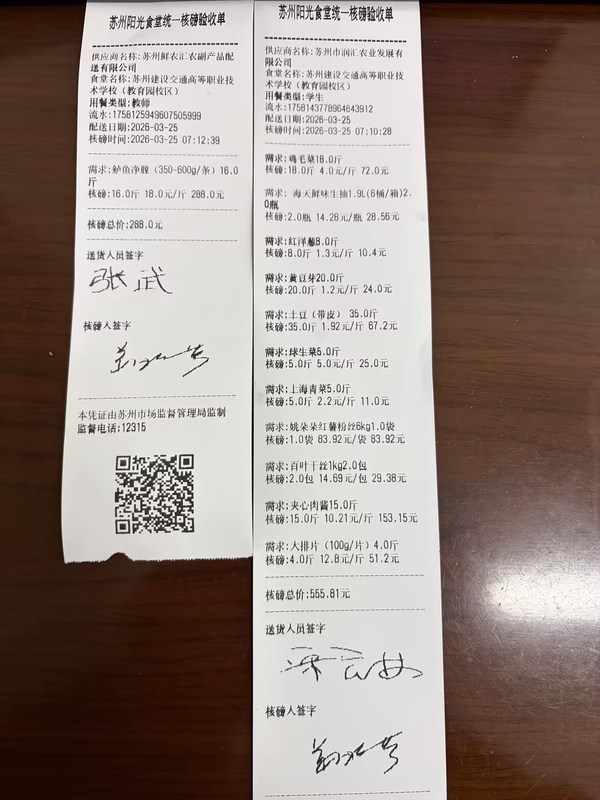 苏州阳光食堂统一核磅验收单
供应商名称:苏州鲜农汇农副产品配
送有限公司
食堂名称:苏州建设交通高等职业技
术学校（教育园校区）
用餐类型:教师
流水:1758125949607505999
配送日期:2026-03-25
核磅时间:2026-03-25 07:12:39
需求:鲈鱼净膛（350-600g/条）16.0
斤
核磅:16.0斤 18.0元/斤 288.0元
核磅总价:288.0元
送货人员签字
张武
核磅人签字
本凭证由苏州市场监督管理局监制
监督电话:12315
苏州阳光食堂统一核磅验收单
供应商名称:苏州市润汇农业发展有
限公司
食堂名称:苏州建设交通高等职业技
术学校（教育园校区）
用餐类型:学生
流水:1758143778964643912
配送日期:2026-03-25
核磅时间:2026-03-25 07:10:28
需求:鸡毛菜18.0斤
核磅:18.0斤 4.0元/斤 72.0元
需求: 海天鲜味生抽1.9L(6桶/箱)2.
0瓶
核磅:2.0瓶 14.28元/瓶 28.56元
需求:红洋葱8.0斤
核磅:8.0斤 1.3元/斤 10.4元
需求:黄豆芽20.0斤
核磅:20.0斤 1.2元/斤 24.0元
需求:土豆（带皮） 35.0斤
核磅:35.0斤 1.92元/斤 67.2元
需求:球生菜5.0斤
核磅:5.0斤 5.0元/斤 25.0元
需求:上海青菜5.0斤
核磅:5.0斤 2.2元/斤 11.0元
需求:姚朵朵红薯粉丝6kg1.0袋
核磅:1.0袋 83.92元/袋 83.92元
需求:百叶干丝1kg2.0包
核磅:2.0包 14.69元/包 29.38元
需求:夹心肉酱15.0斤
核磅:15.0斤 10.21元/斤 153.15元
需求:大排片（100g/片）4.0斤
核磅:4.0斤 12.8元/斤 51.2元
核磅总价:555.81元
送货人员签字
核磅人签字